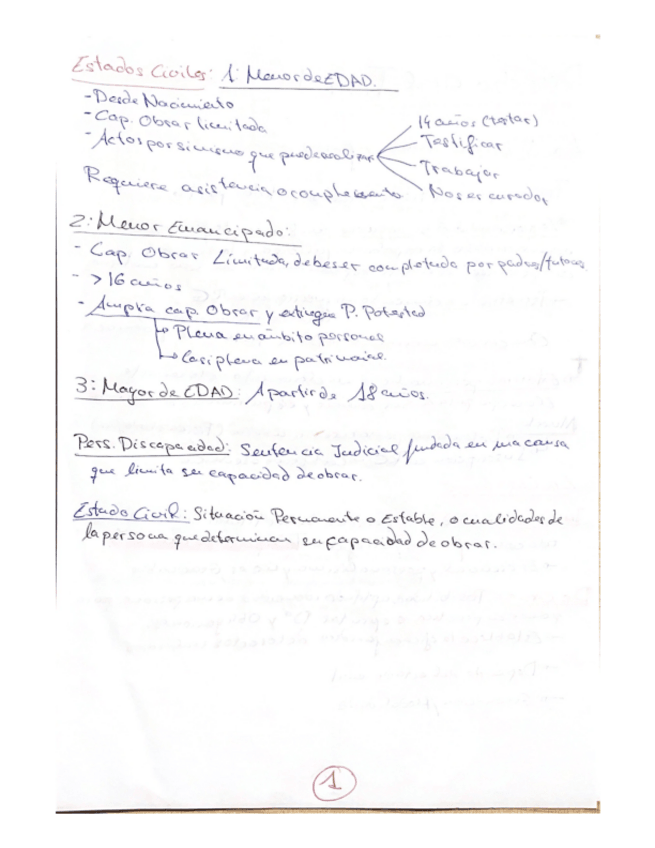 Estados Civiles: 1: Menor de EDAD.
- Desde Nacimiento
- Cap. Obrar limitada
- Actos por si mismo que puede realizar
14 años (testar)
Testificar
Trabajar
No ser curador
Requiere asistencia o complemento
2: Menor Emancipado:
- Cap. Obrar Limitada, debe ser completada por padres/tutores
- > 16 años
- Amplia cap. Obrar y extingue P. Potestad
Plena en ámbito personal
Casi plena en patrimonial.
3: Mayor de EDAD: A partir de 18 años.
Pers. Discapacidad: Sentencia Judicial fundada en una causa
que limita su capacidad de obrar.
Estado Civil: Situación Permanente o Estable, o cualidades de
la persona que determinan su capacidad de obrar.
1